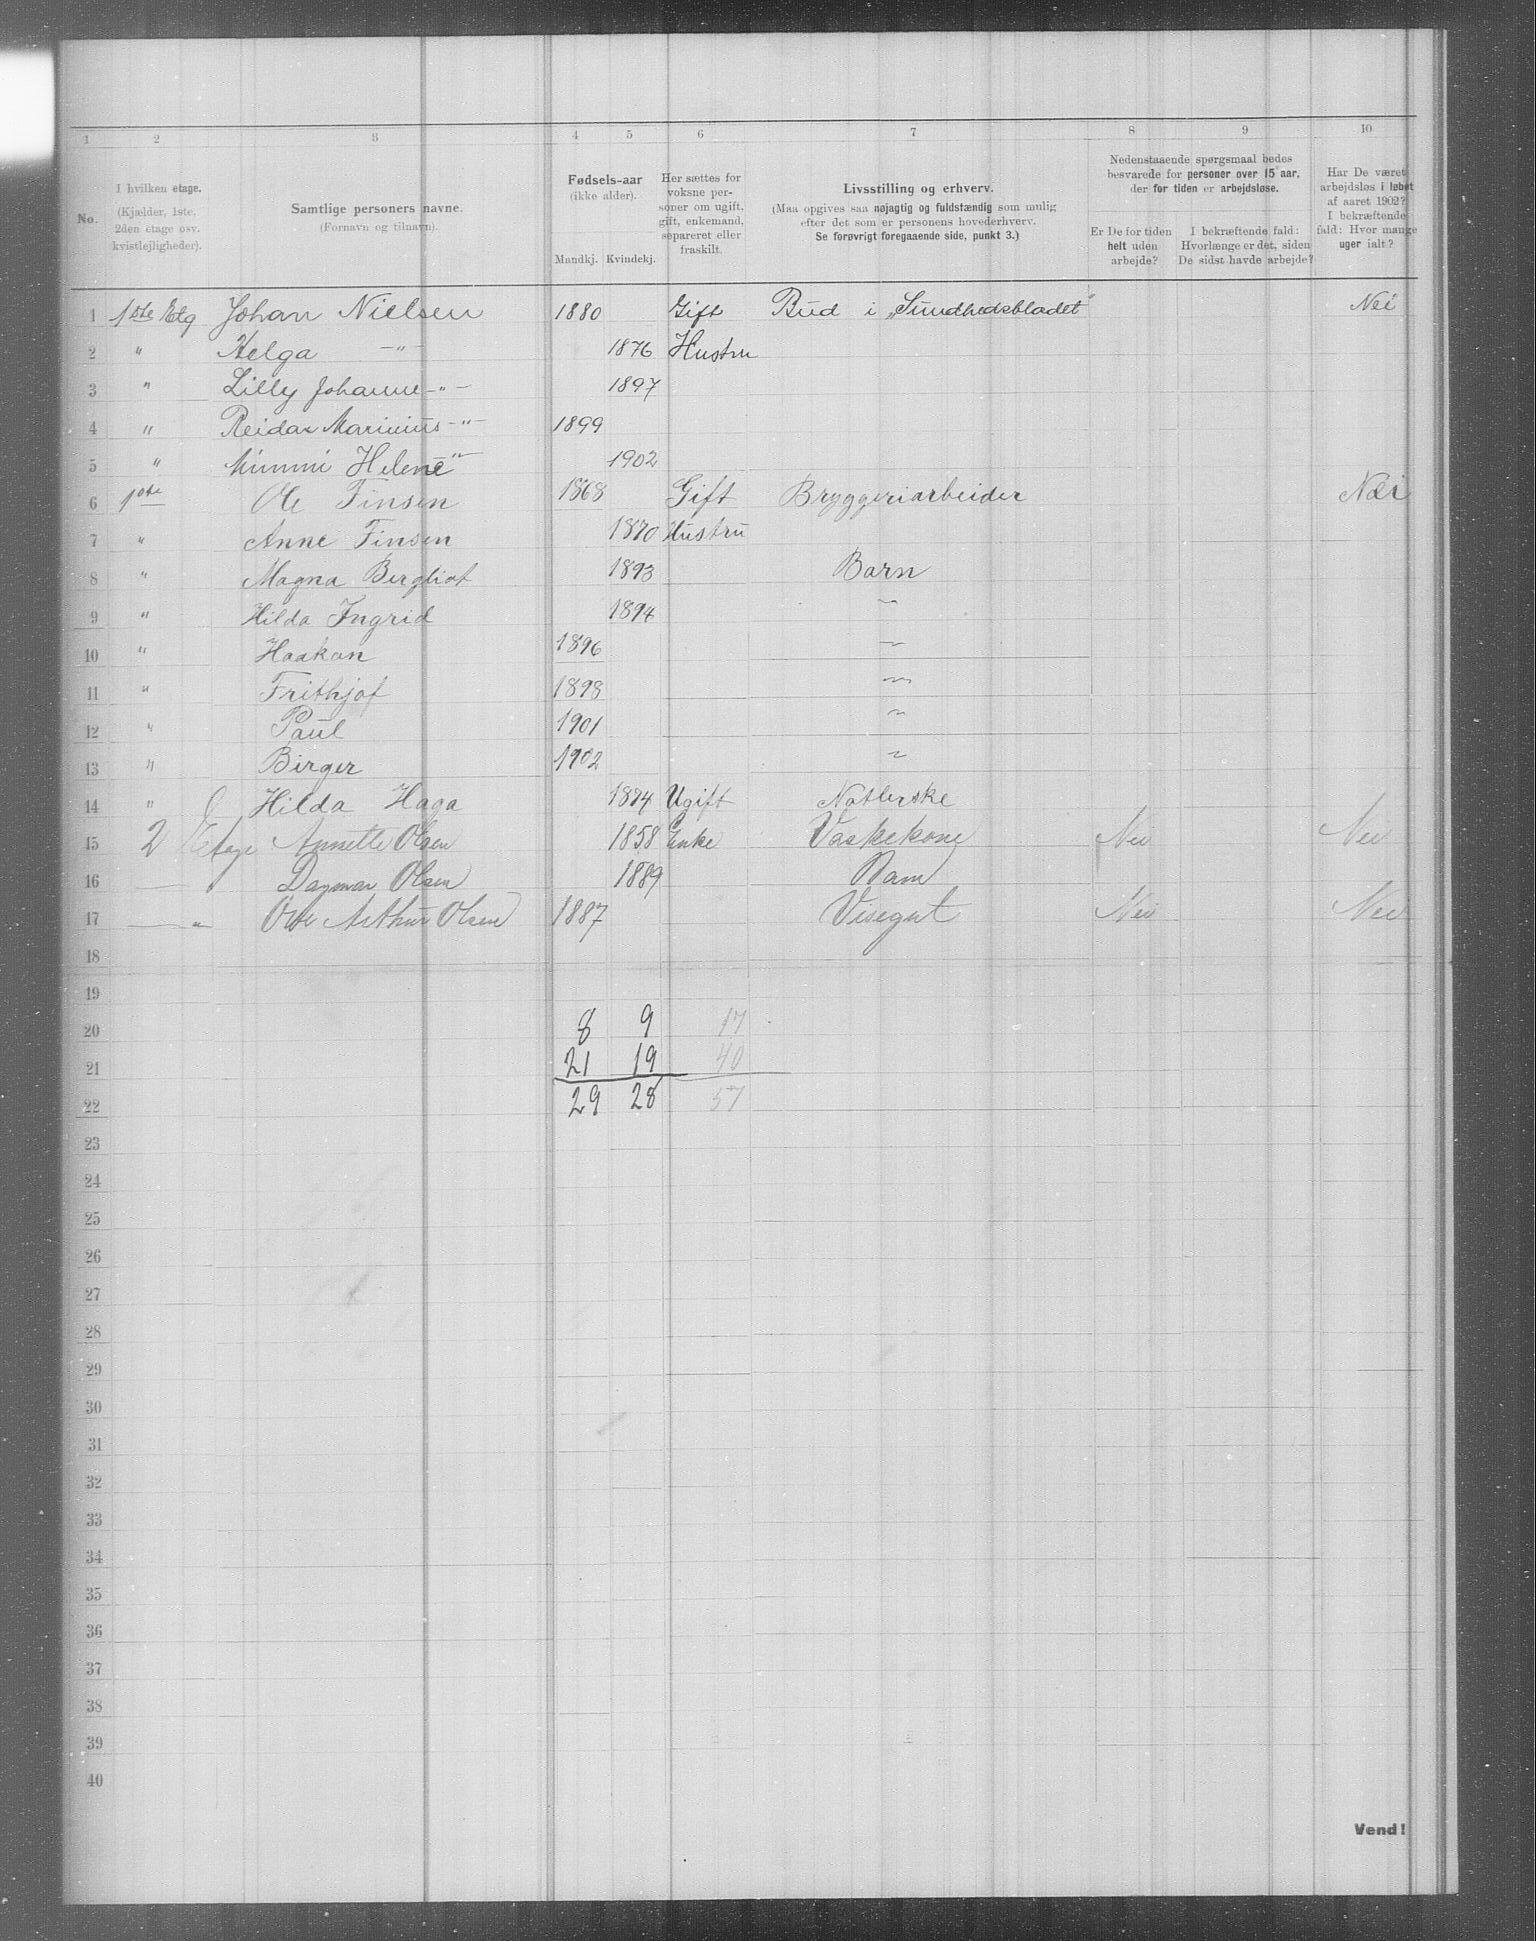 1 2 3 4 5 6 7 8 9 10
No.
I hvilken etage.
(Kjælder, 1ste,
2den etage osv.
kvistlejligheder).
Samtlige personers navne.
(Fornavn og tilnavn).
Fødsels-aar
(ikke alder).
Mandkj. Kvindekj.
Her sættes for
voksne per-
soner om ugift,
gift, enkemand,
separeret eller
fraskilt.
Livsstilling og erhverv.
(Maa opgives saa nøjagtig og fuldstændig som mulig
efter det som er personens hovederhverv.
Se forøvrigt foregaaende side, punkt 3.)
Nedenstaaende spørgsmaal bedes
besvarede for personer over 15 aar,
der for tiden er arbejdsløse.
Er De for tiden
helt uden
arbejde?
I bekræftende fald:
Hvorlænge er det, siden
De sidst havde arbejde?
Har De været
arbejdsløs i løbet
af aaret 1902?
I bekræftende
fald: Hvor mange
uger ialt?
1 1ste Etg Johan Nielsen 1880 Gift Bud i „Sundhedsbladet" Nei
2 " Helga —"— 1876 Hustru
3 " Lilly Johanne —"— 1897
4 " Reidar Marinius —"— 1899
5 " Mimmi Helene —"— 1902
6 1ste Ole Finsen 1868 Gift Bryggeriarbeider Nei
7 " Anne Finsen 1870 Hustru
8 " Magna Bergliot 1893 Barn
9 " Hilda Ingrid 1894 "
10 " Haakon 1896 "
11 " Frithjof 1898 "
12 " Paul 1901 "
13 " Birger 1902 "
14 " Hilda Haga 1874 Ugift
15 2 Etage Annette Olsen 1858 Enke Vaskekone Nei Nei
16 — Dagmar Olsen 1889 Barn
17 —"— Arthur Olsen 1887 Visegut Nei Nei
18
19
20 8 9 17
21 21 19 40
22 29 28 57
23
24
25
26
27
28
29
30
31
32
33
34
35
36
37
38
39
40
Vend!